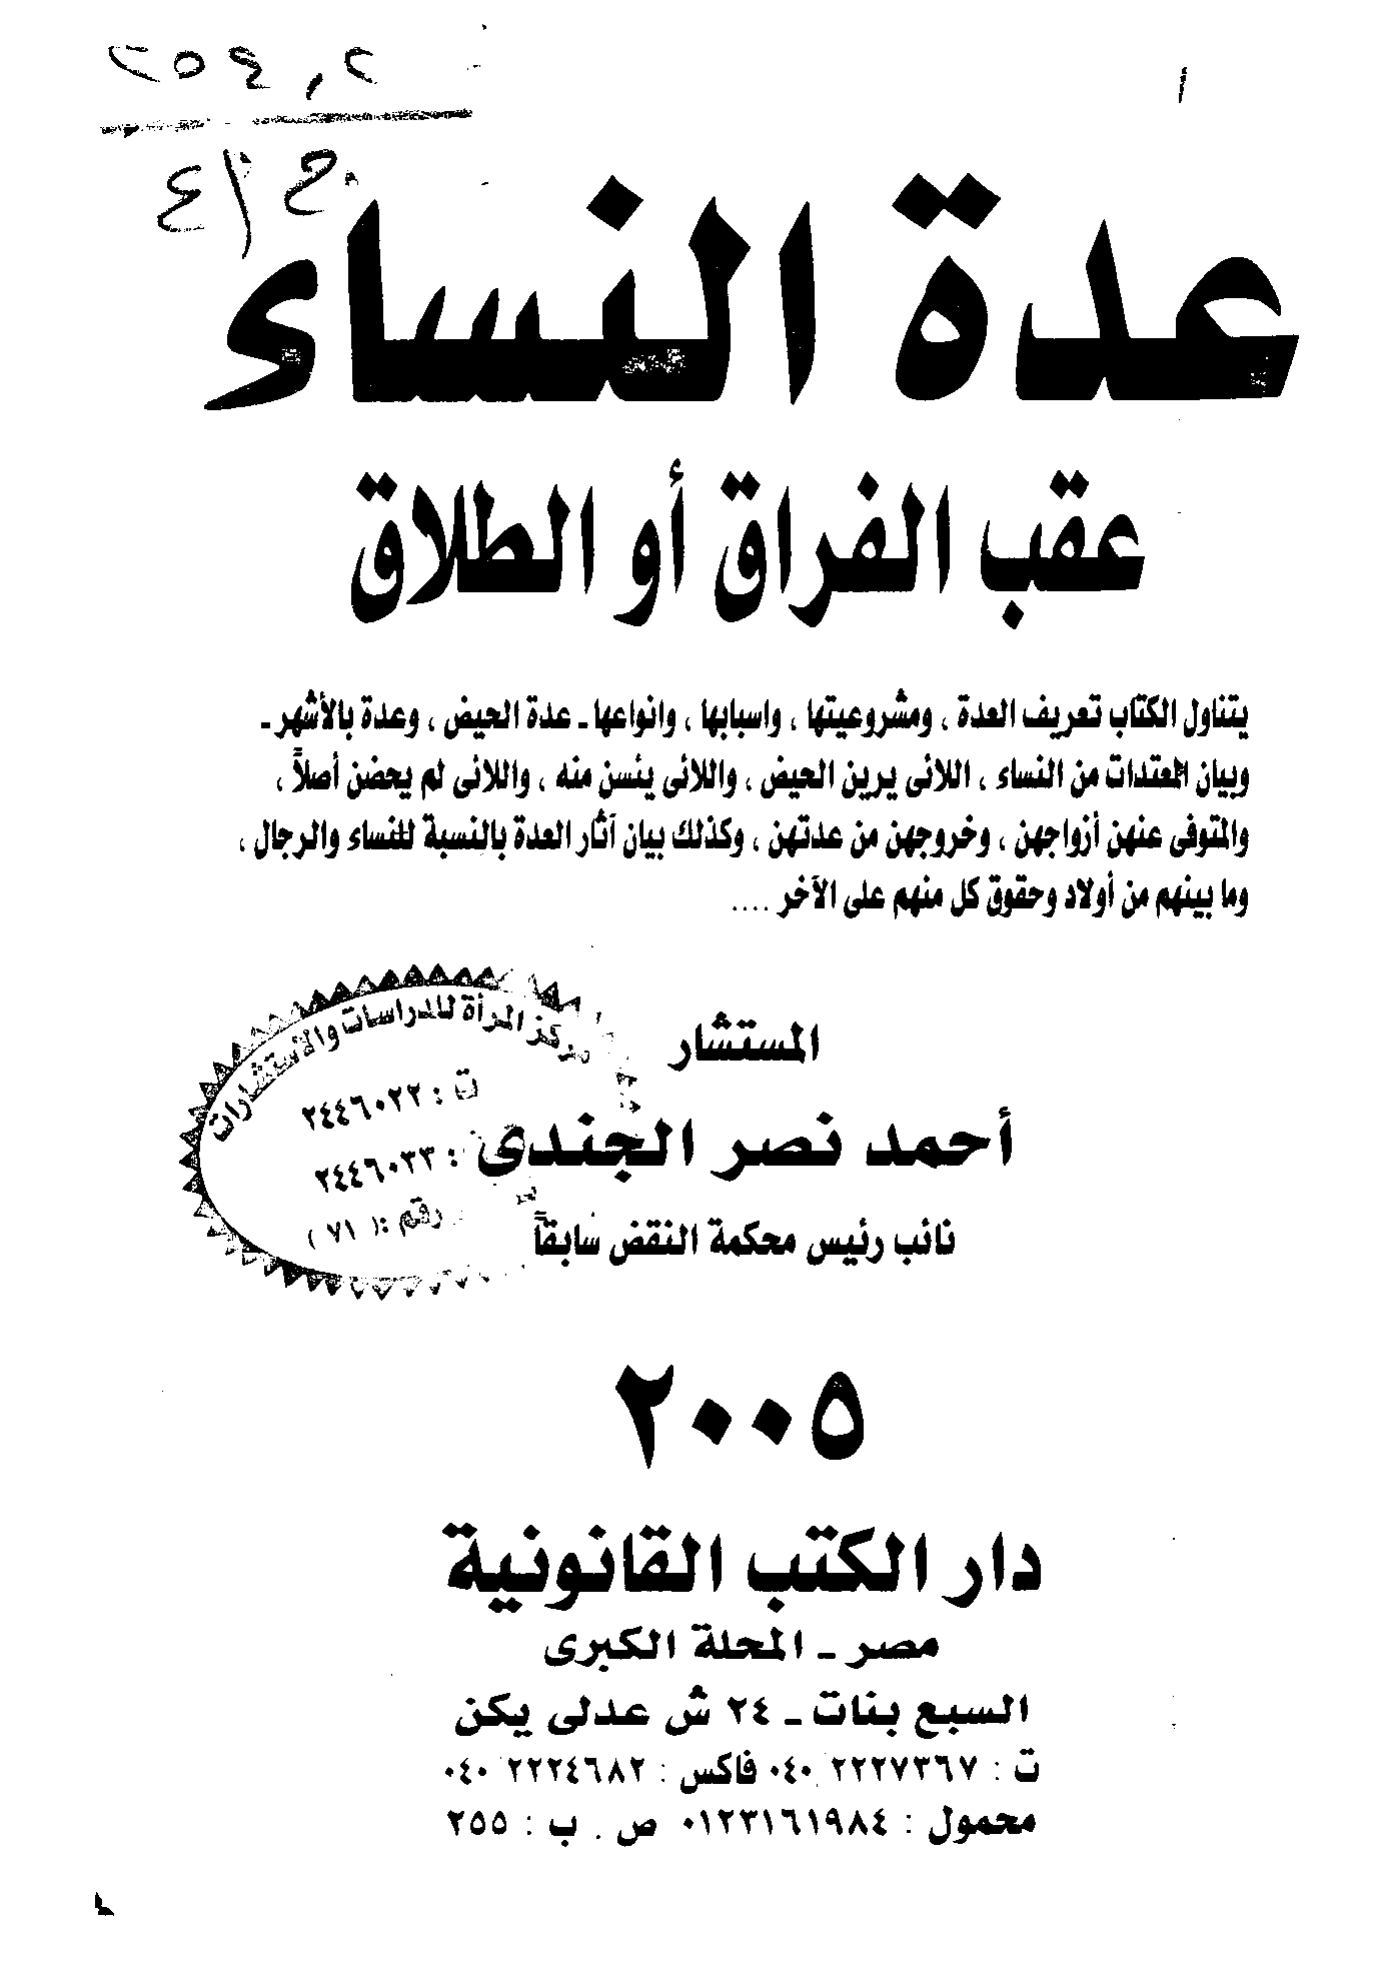 عدة النساء
عقب الفراق أو الطلاق
يتناول الكتاب تعريف العدة ، ومشروعيتها ، واسبابها ، وانواعها ـ عدة الحيض ، وعدة بالأشهر ـ
وبيان المعتدات من النساء ، اللائى يرين الحيض ، واللائى يئسن منه ، واللائى لم يحضن أصلاً ،
والمتوفى عنهن أزواجهن ، وخروجهن من عدتهن ، وكذلك بيان آثار العدة بالنسبة للنساء والرجال ،
وما بينهم من أولاد وحقوق كل منهم على الآخر ....
مركز المرأة للدراسات والاستشارات
ت : ٢٤٤٦٠٢٢
: ٢٤٤٦٠٣٣
رقم : ( ٧١ )
المستشار
أحمد نصر الجندى
نائب رئيس محكمة النقض سابقاً
٢٠٠٥
دار الكتب القانونية
مصر ـ المحلة الكبرى
السبع بنات ـ ٢٤ ش عدلى يكن
ت : ٢٢٢٧٣٦٧ ٠٤٠ فاكس : ٢٢٢٤٦٨٢ ٠٤٠
محمول : ٠١٢٣١٦١٩٨٤ ص . ب : ٢٥٥